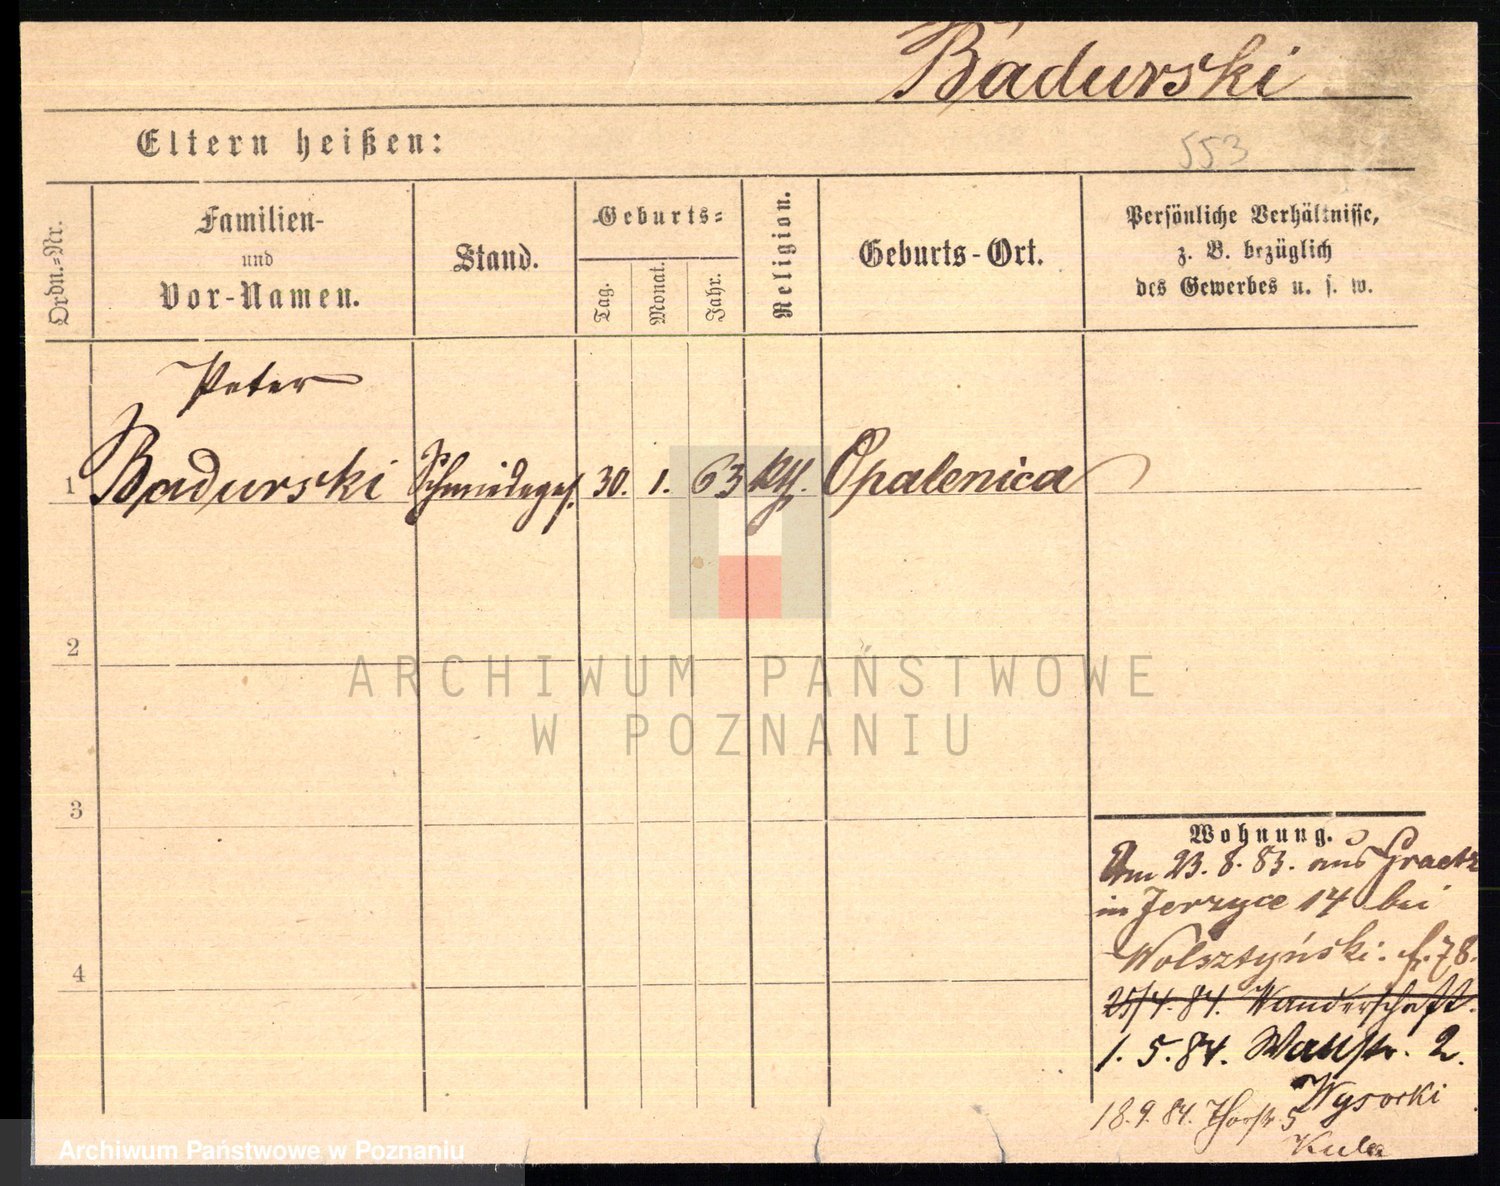 Badurski
Eltern heißen:
553
Ordn.-Nr.
Familien-
und
Vor-Namen.
Stand.
Geburts-
Tag.
Monat.
Jahr.
Religion.
Geburts-Ort.
Persönliche Verhältnisse,
z. B. bezüglich
des Gewerbes u. s. w.
Peter
1 Badurski Schmiedeges. 30. 1. 63 kth. Opalenica
2
ARCHIWUM PAŃSTWOWE
W POZNANIU
3
4
Wohnung.
Am 23. 8. 83. aus Graetz
in Jerzyce 14 bei
Wolsztyński. f. 78.
25/4. 84. Wanderschaft.
1. 5. 84. Wallstr. 2.
Wysocki
18. 9. 84. Thorstr. 5
Kula
Archiwum Państwowe w Poznaniu